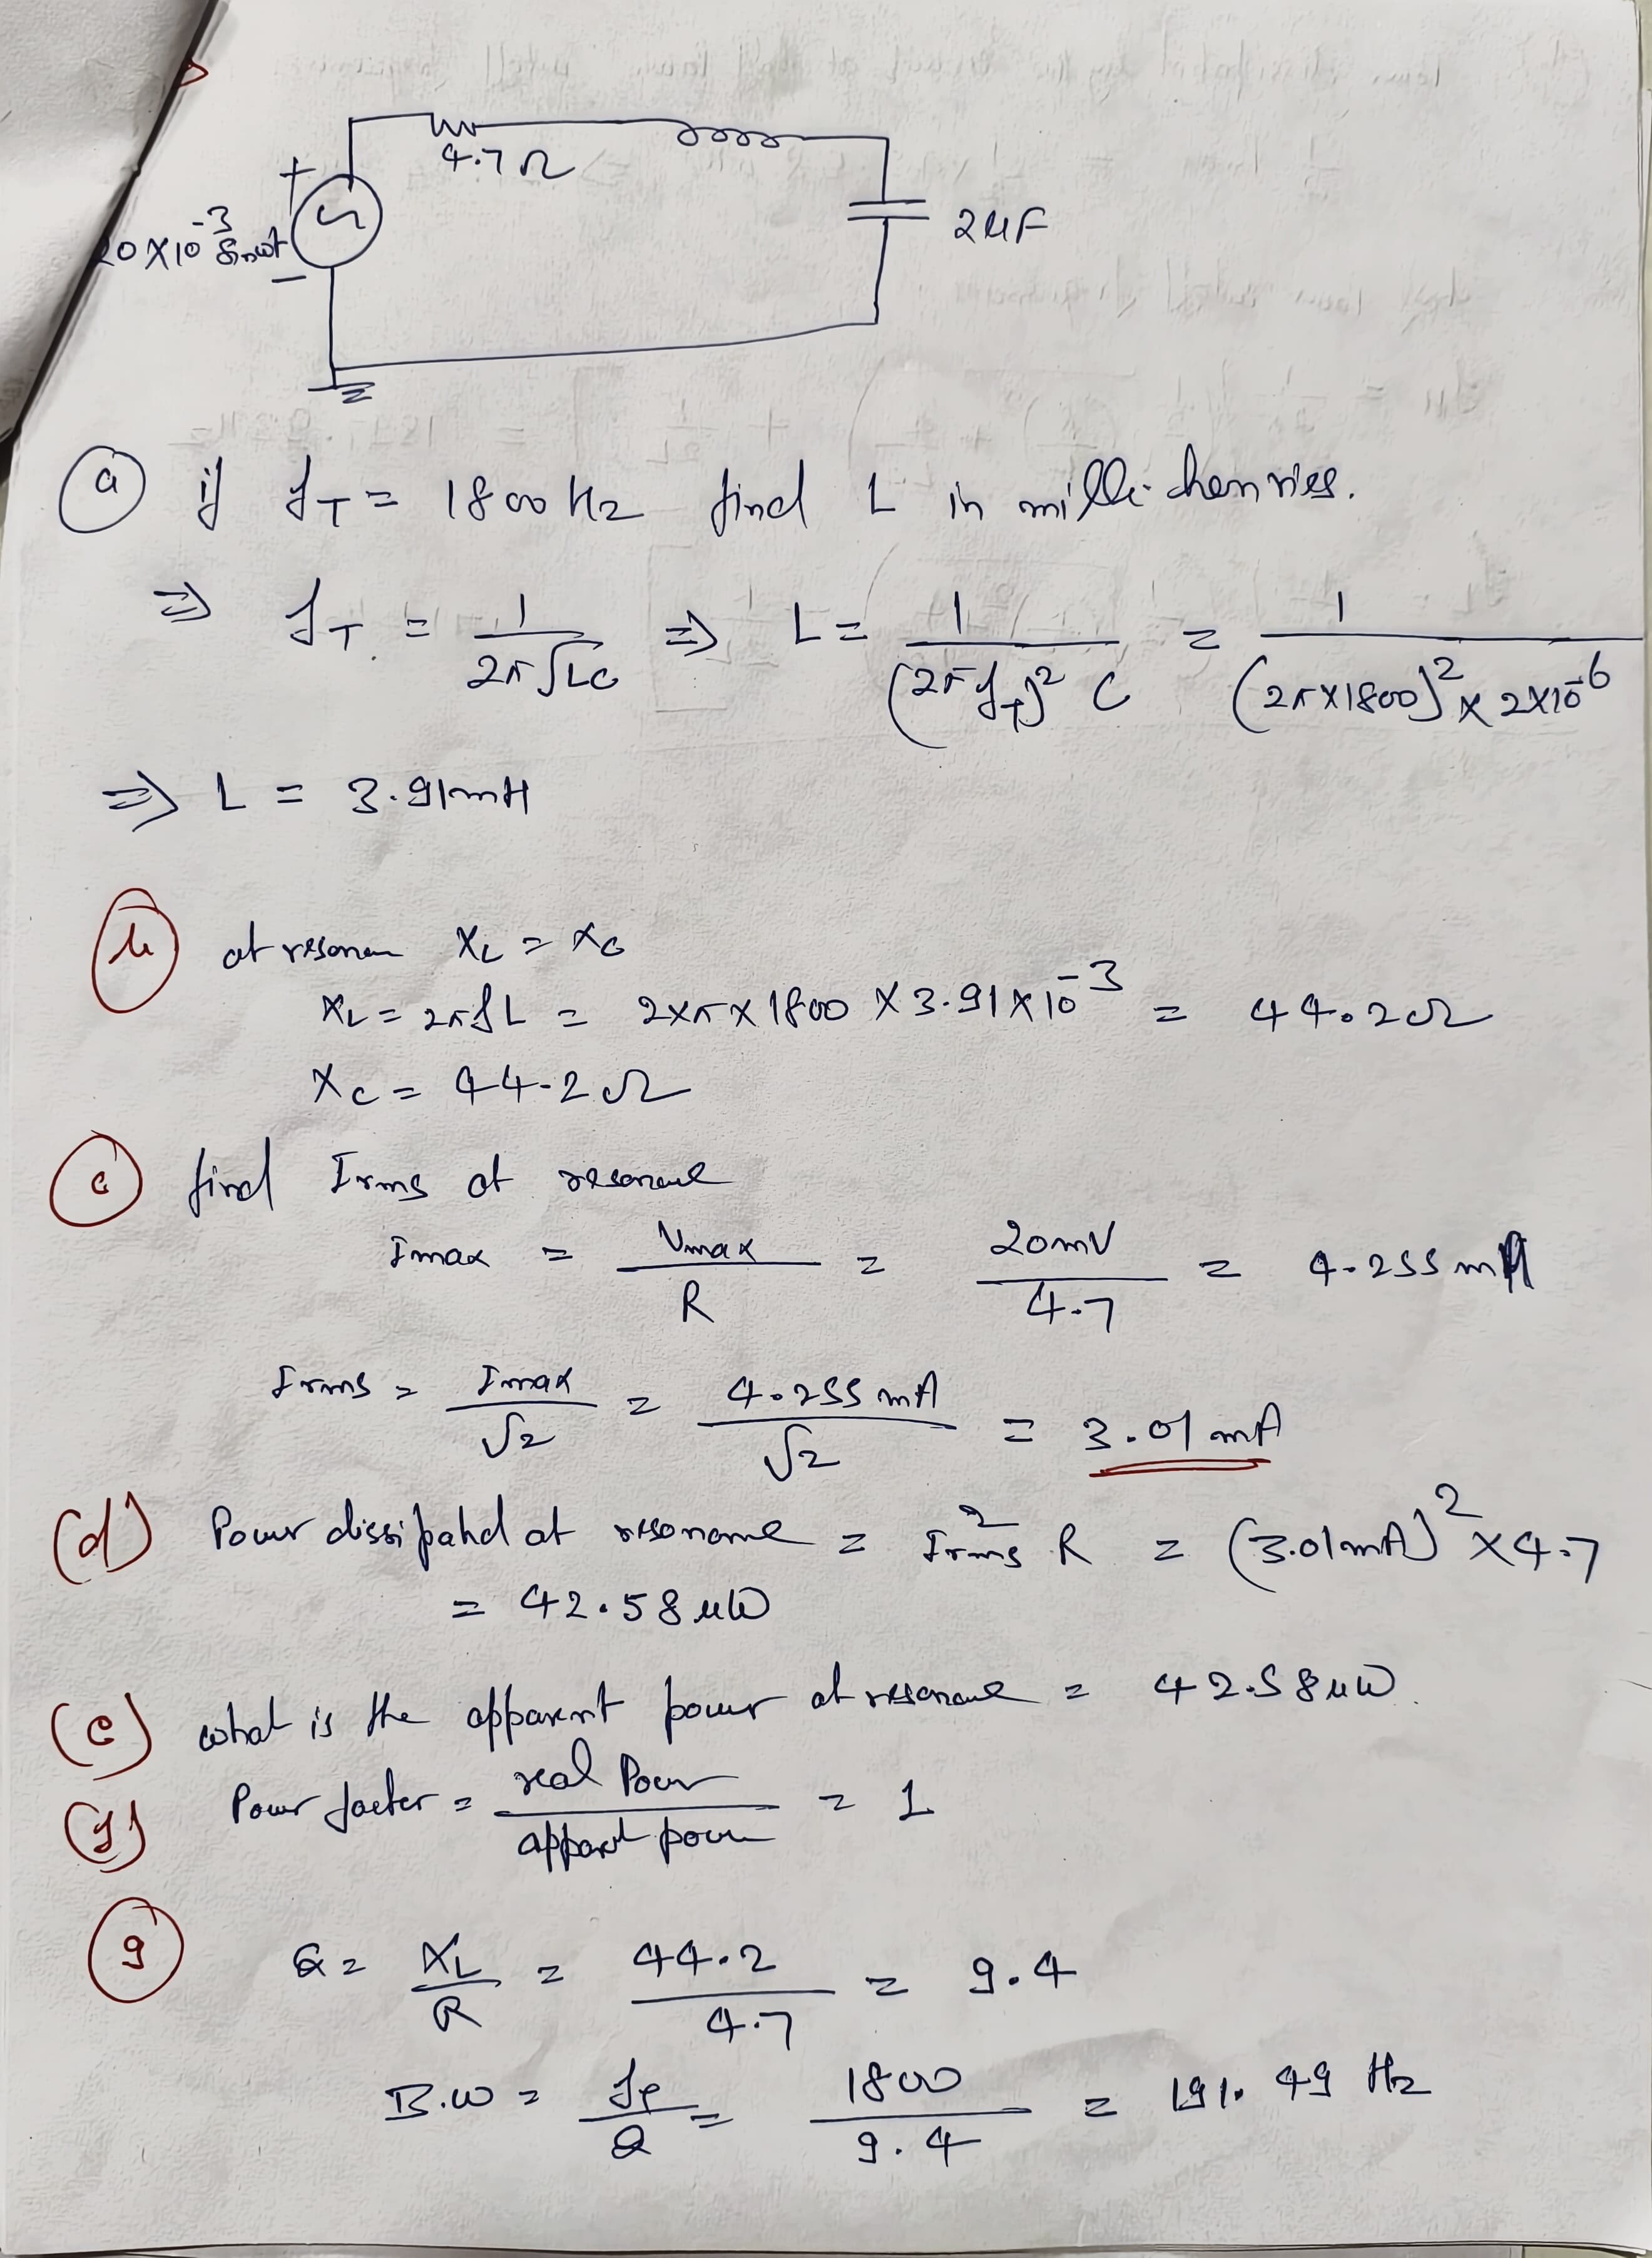 4.7 Ω
20 X 10⁻³ Sinωt
+
-
2 μF
(a) if fT = 1800 Hz find L in milli-henries.
⇒ fT = 1/(2π√LC) ⇒ L = 1/((2π fT)² C) = 1/((2π X 1800)² X 2X10⁻⁶)
⇒ L = 3.91mH
at resonan XL = XC
XL = 2πfL = 2XπX 1800 X 3.91X10⁻³ = 44.2Ω
XC = 44.2Ω
(c) find Irms at resonance
Imax = Vmax/R = 20mV/4.7 = 4.255 mA
Irms = Imax/√2 = 4.255 mA/√2 = 3.01 mA
(d) Power dissipated at resonance = I²rms R = (3.01mA)² X4.7
= 42.58 μW
(e) what is the apparent power at resonance = 42.58 μW.
(f) Power factor = real Power/apparent power = 1
(g) Q = XL/R = 44.2/4.7 = 9.4
B.W = /Q = 1800/9.4 = 191.49 Hz